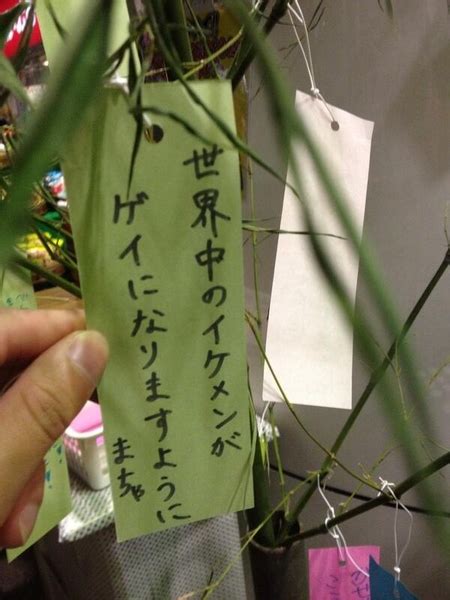 世界中のイケメンが
ゲイになりますように
まちゃ